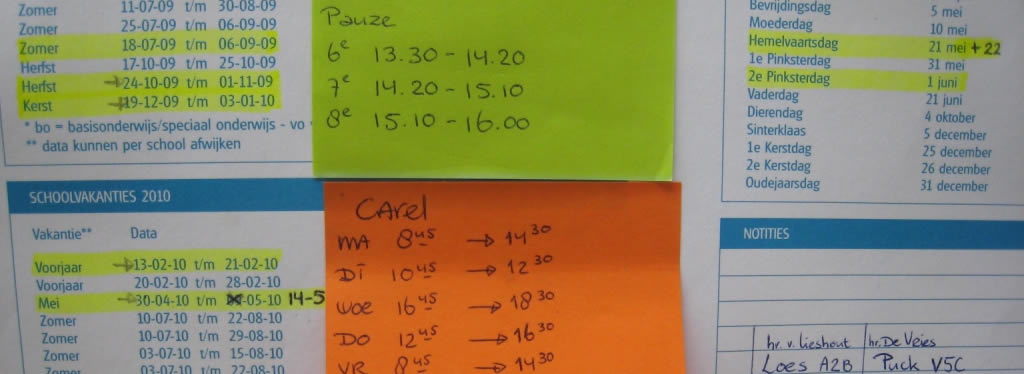 Zomer 11-07-09 t/m 30-08-09
Zomer 25-07-09 t/m 06-09-09
Zomer 18-07-09 t/m 06-09-09
Herfst 17-10-09 t/m 25-10-09
Herfst →24-10-09 t/m 01-11-09
Kerst →19-12-09 t/m 03-01-10
* bo = basisonderwijs/speciaal onderwijs - vo
** data kunnen per school afwijken
Pauze
6e 13.30 - 14.20
7e 14.20 - 15.10
8e 15.10 - 16.00
Bevrijdingsdag 5 mei
Moederdag 10 mei
Hemelvaartsdag 21 mei + 22
1e Pinksterdag 31 mei
2e Pinksterdag 1 juni
Vaderdag 21 juni
Dierendag 4 oktober
Sinterklaas 5 december
1e Kerstdag 25 december
2e Kerstdag 26 december
Oudejaarsdag 31 december
SCHOOLVAKANTIES 2010
Vakantie** Data
Voorjaar →13-02-10 t/m 21-02-10
Voorjaar 20-02-10 t/m 28-02-10
Mei →30-04-10 t/m -05-10 14-5
Zomer 10-07-10 t/m 22-08-10
Zomer 10-07-10 t/m 29-08-10
Zomer 03-07-10 t/m 15-08-10
Zomer 03-07-10 t/m 22-08-10
CArel
MA 8 45 → 14 30
DI 10 45 → 12 30
WOE 16 45 → 18 30
DO 12 45 → 16 30
VR 8 45 → 14 30
NOTITIES
hr. v. Lieshout hr. De Vries
Loes A2B Puck V5C